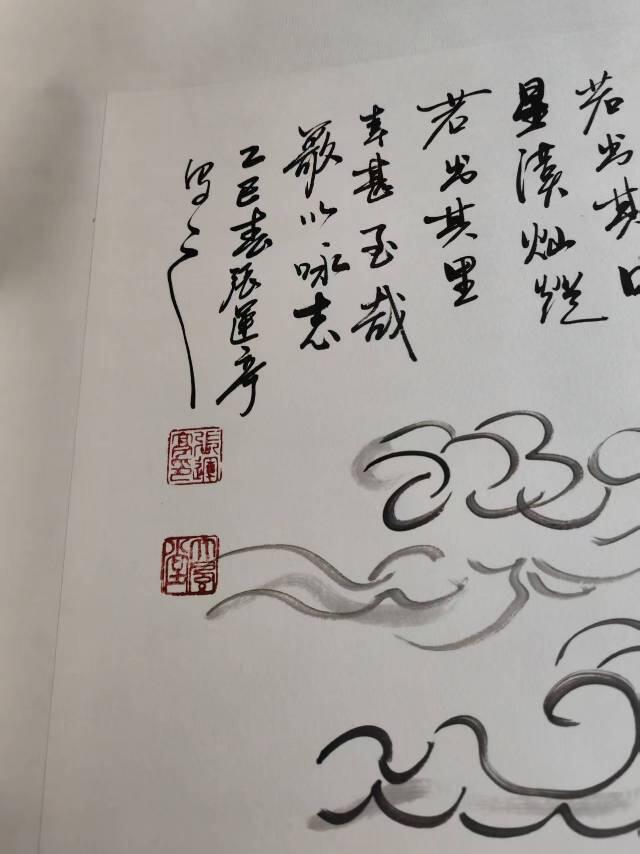 若出其中
星漢灿爛
若出其里
幸甚至哉
歌以咏志
乙巳春張運亭
写之
張運亭印